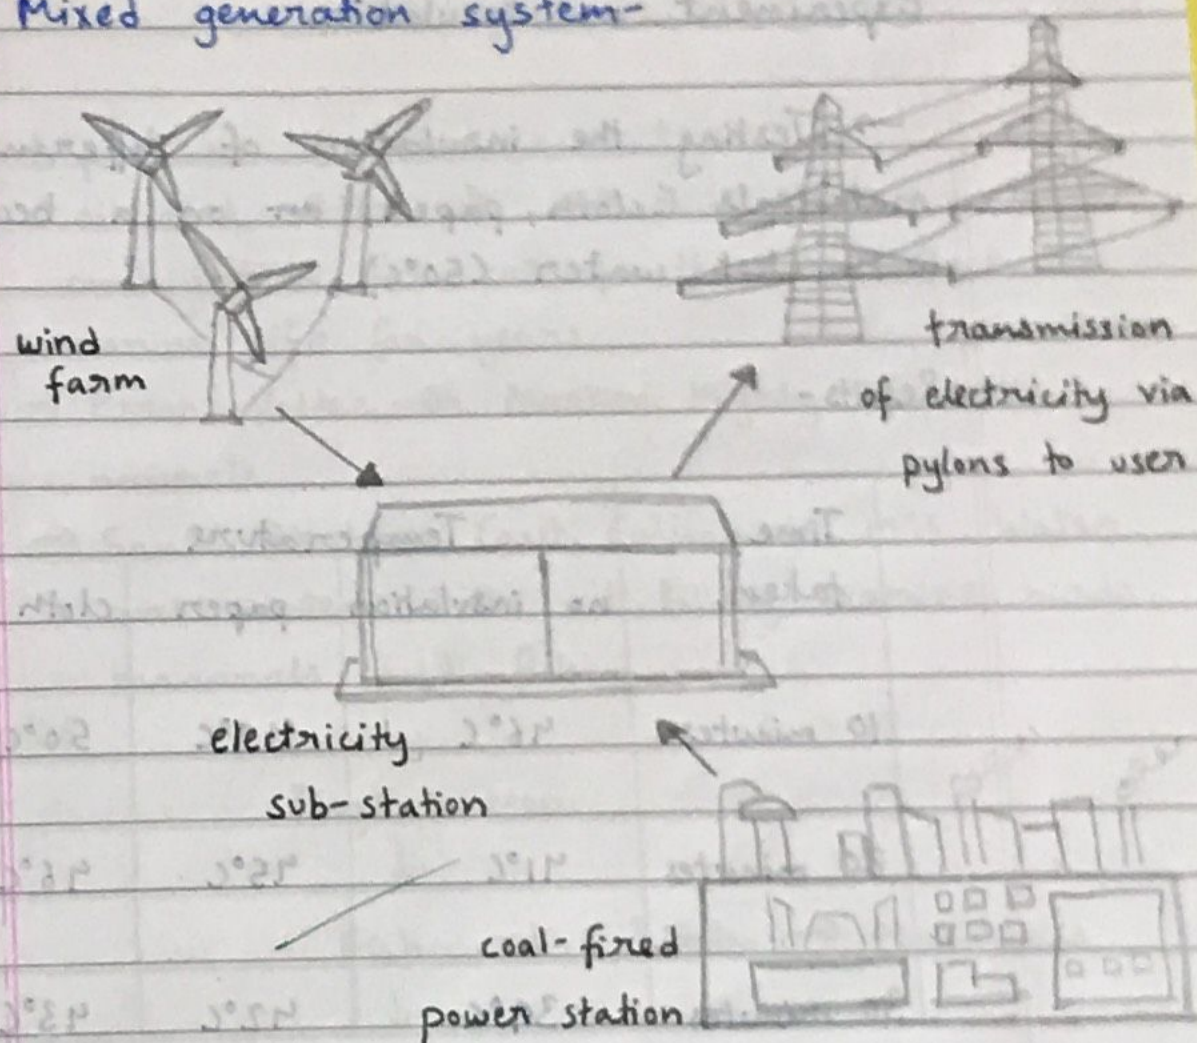 Mixed generation system-
wind
farm
transmission
of electricity via
pylons to user
electricity
sub-station
coal-fired
power station